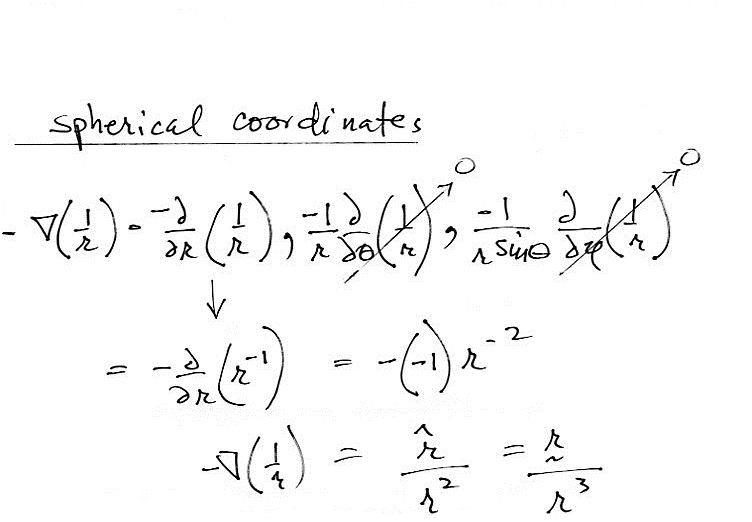 spherical coordinates
0 0
- ∇(1/r) = -∂/∂r (1/r), -1/r ∂/∂θ (1/r), -1/(r sinθ) ∂/∂φ (1/r)
↓
= -∂/∂r (r⁻¹) = -(-1) r⁻²
-∇(1/r) = r̂/r² = r̰/r³